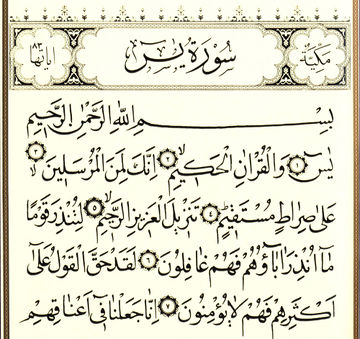 مكية سورة يس اياتها ٨٣
بسم الله الرحمن الرحيم
يس ١ والقران الحكيم ٢ انك لمن المرسلين ٣
على صراط مستقيم ٤ تنزيل العزيز الرحيم ٥ لتنذر قوما
ما انذر اباؤهم فهم غافلون ٦ لقد حق القول على
اكثرهم فهم لا يؤمنون ٧ انا جعلنا في اعناقهم